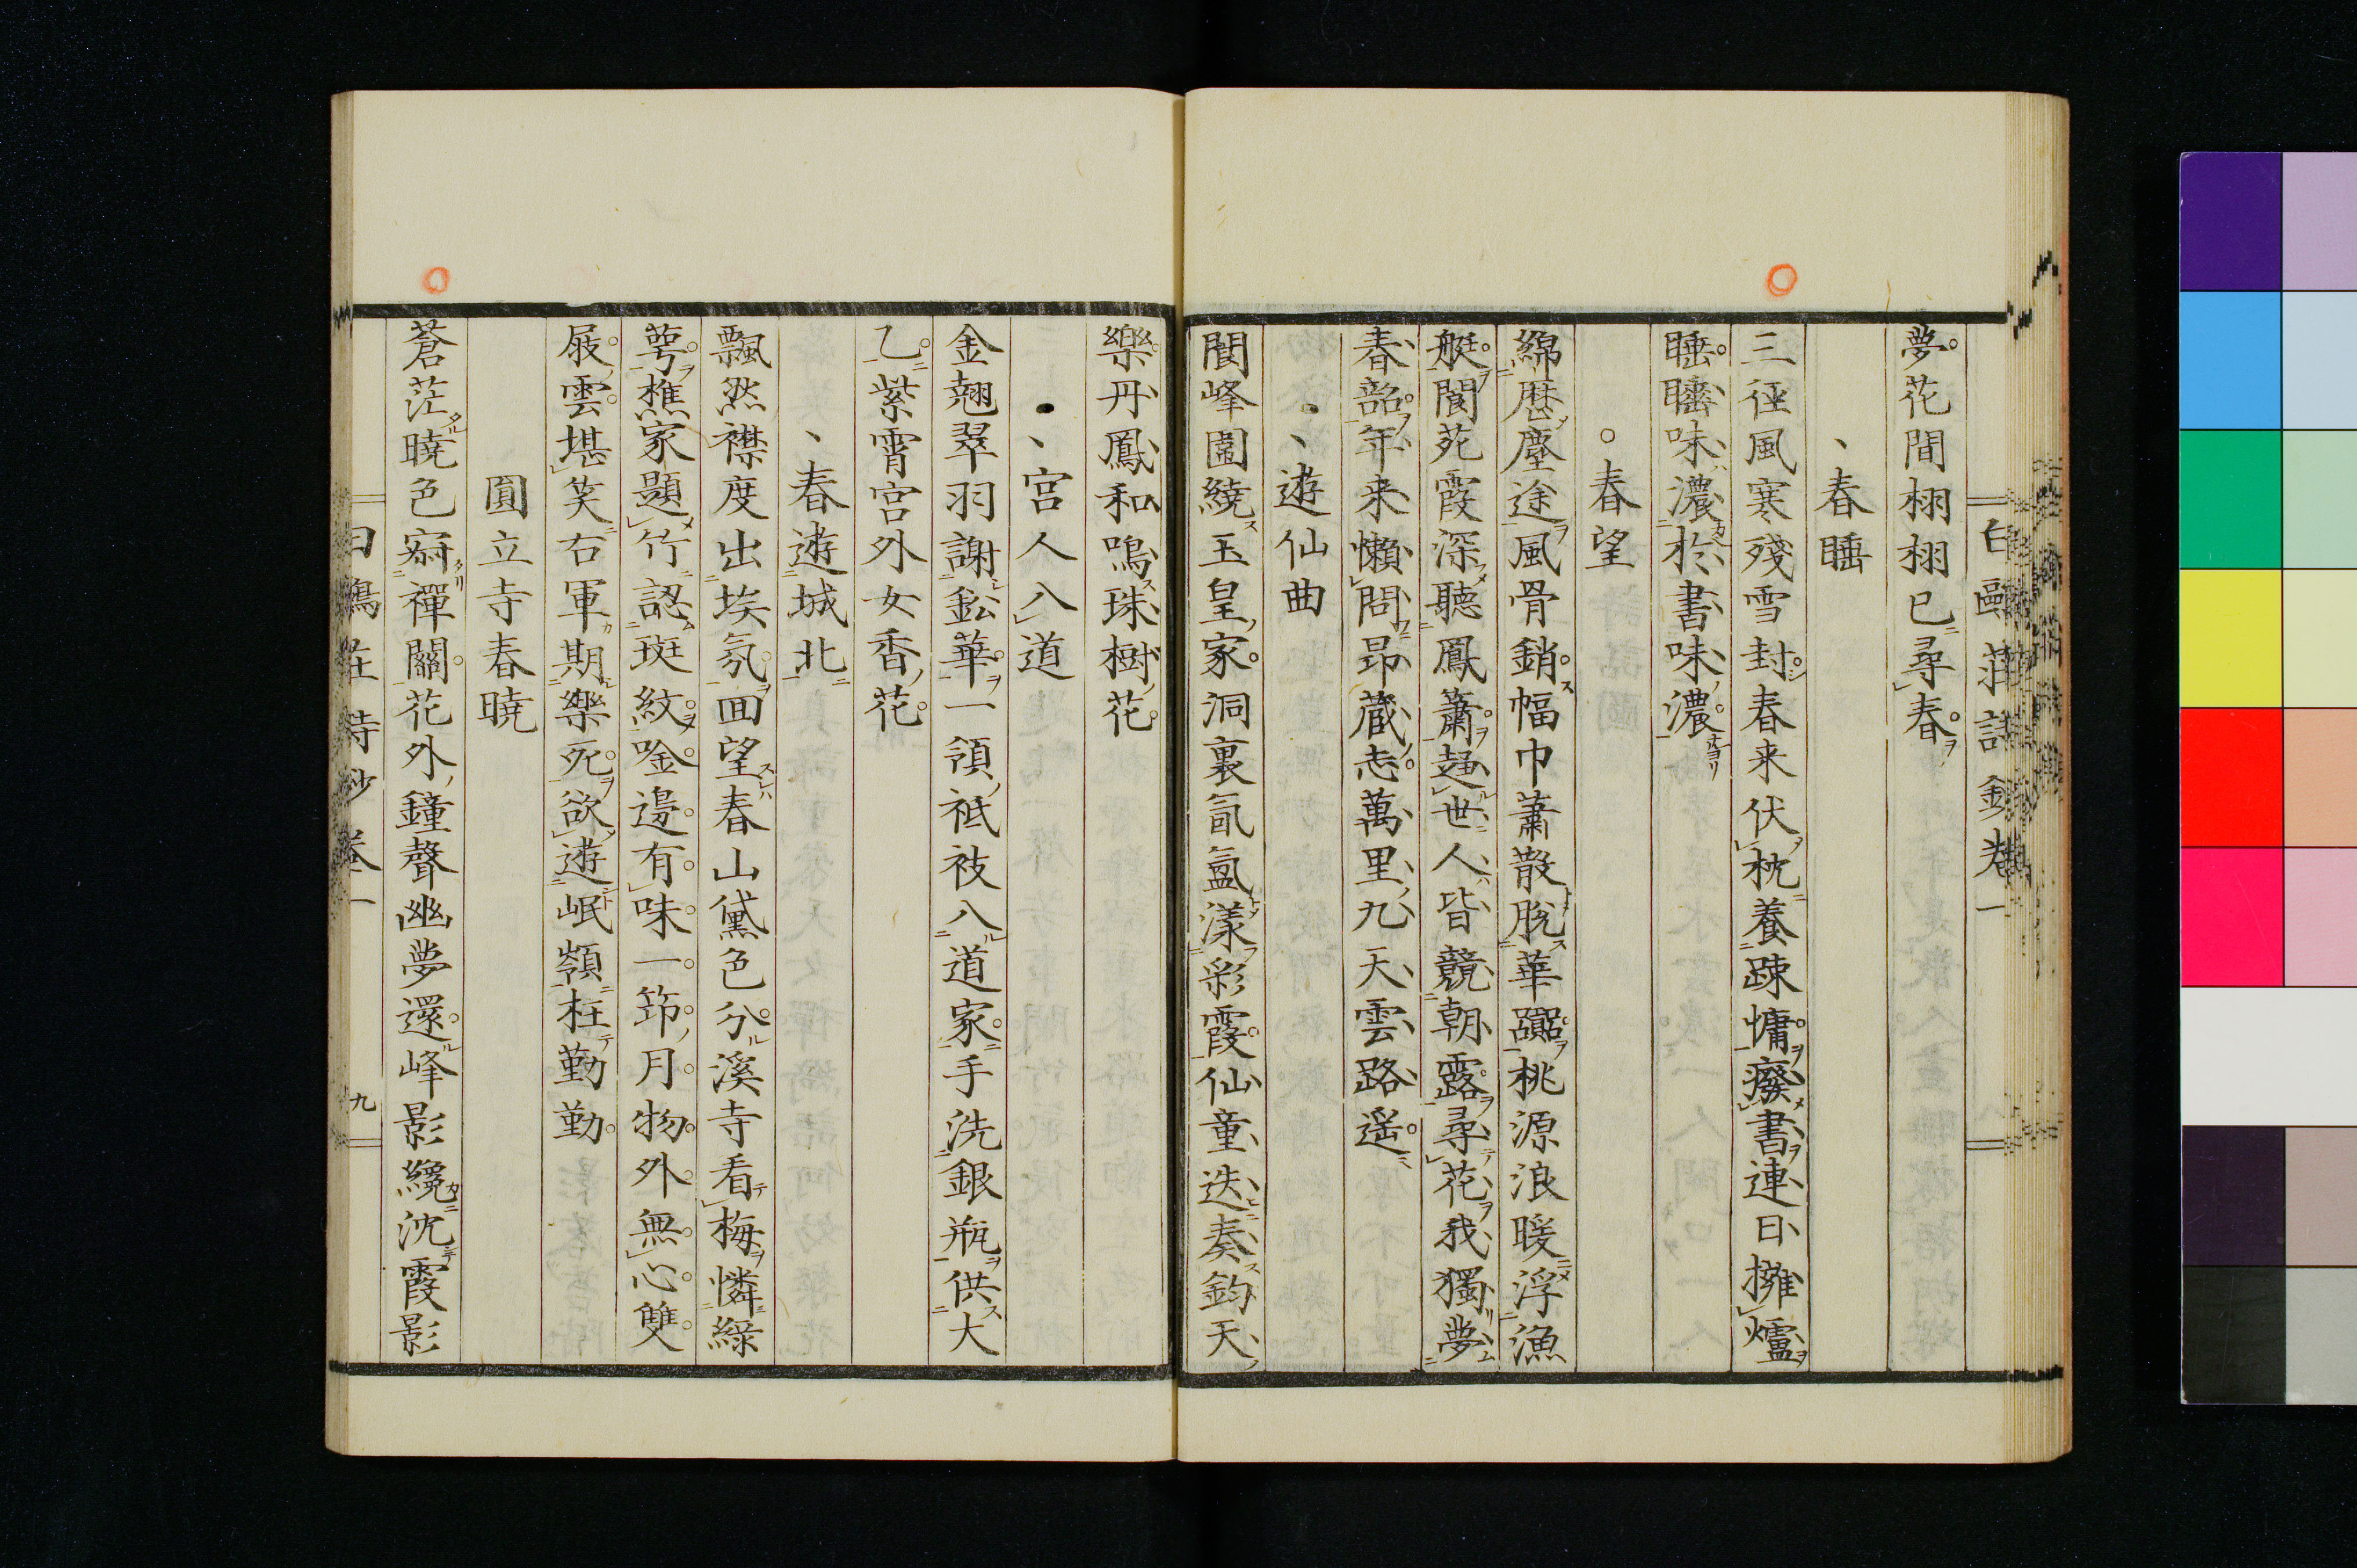 白鷗莊詩鈔卷一
夢花間栩栩已尋春
春睡
三徑風寒殘雪封春来伏枕養疎慵癈書連日擁爐
睡睡味濃於書味濃
春望
綿歴塵途風骨銷幅巾蕭散脫華貂桃源浪暖浮漁
艇閬苑霞深聽鳳簫趍世人皆競朝露尋花我獨夢
春韶年来懶問昂藏志萬里九天雲路遥
遊仙曲
閬峰園繞玉皇家洞裏氤氳漾彩霞仙童迭奏鈞天
樂丹鳳和鳴珠樹花
宮人入道
金翹翠羽謝鉛華一領袛衱入道家手洗銀瓶供大
乙紫霄宮外女香花
春遊城北
飄然襟度出埃氛回望春山黛色分溪寺看梅憐綠
萼樵家題竹認斑紋唫邊有味一筇月物外無心雙
屐雲堪笑右軍期樂死欲遊岷嶺枉勤勤
圓立寺春曉
蒼茫曉色冪禪關花外鐘聲幽夢還峰影纔沈霞影
白鷗莊詩鈔卷一
九